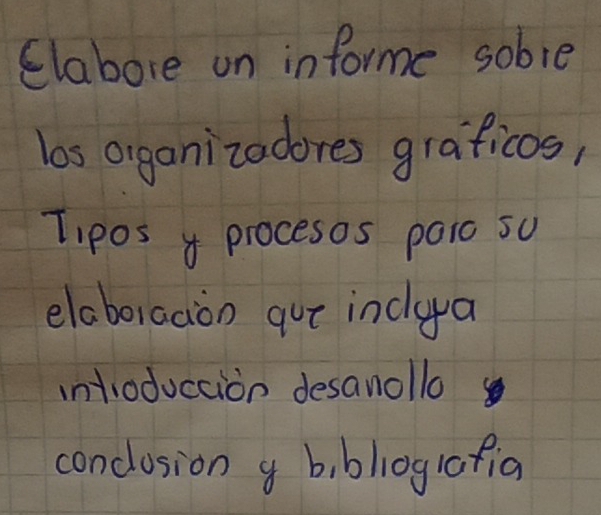 Elabore un informe sobre
los organizadores gráficos,
Tipos y procesos para su
elaboración que incluya
introducción desarrollo
conclusion y bibliografia